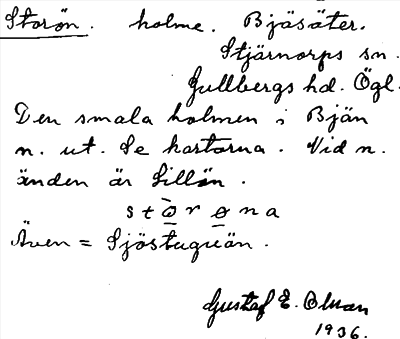 Storön. holme. Bjäsäter.
Stjärnorps sn.
Gullbergs hd. Ögl.
Den smala holmen i Bjän
n. ut. Se kartorna. Vid n.
änden är Lillön.
s t ò̱ r ø̱ n a
Även = Sjöstuguän.
Gustaf E. Olman
1936.